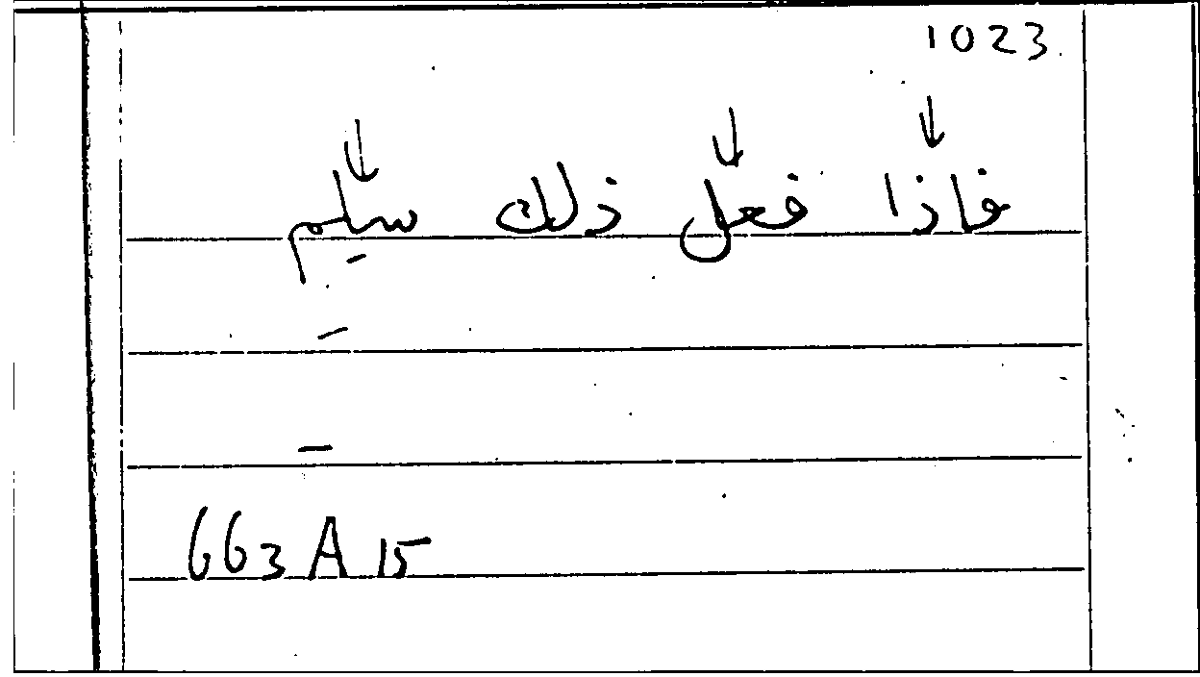 1023
فاذا فعل ذلك سليم
663 A 15